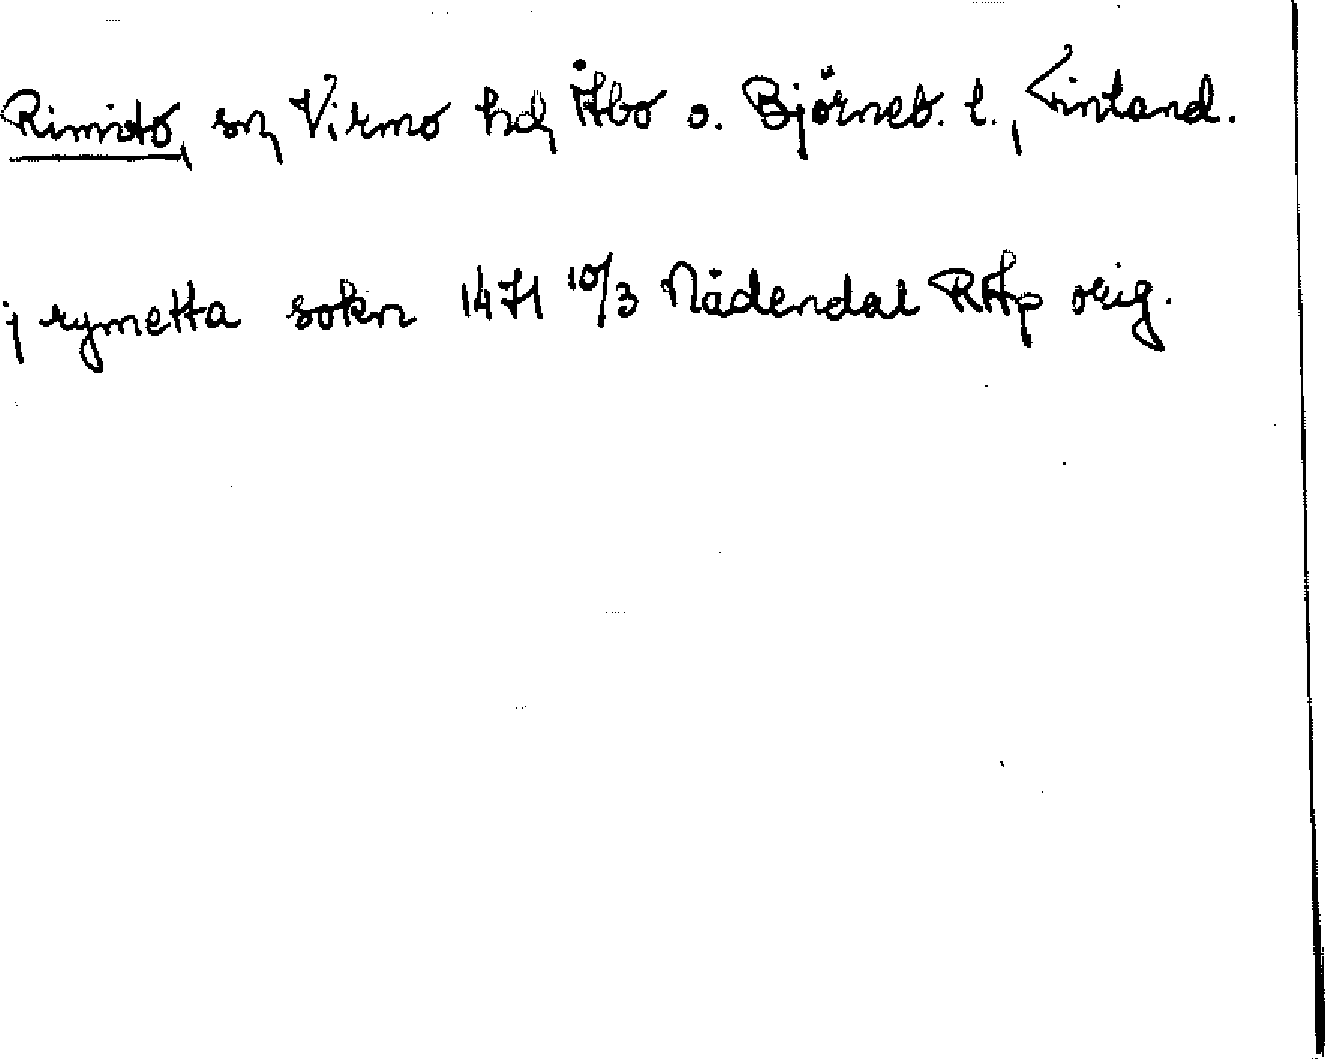 Rimito, sn, Virmo hd, Åbo o. Björneb. l., Finland.
j rymetta sokn 1471 10/3 Nådendal RAp orig.